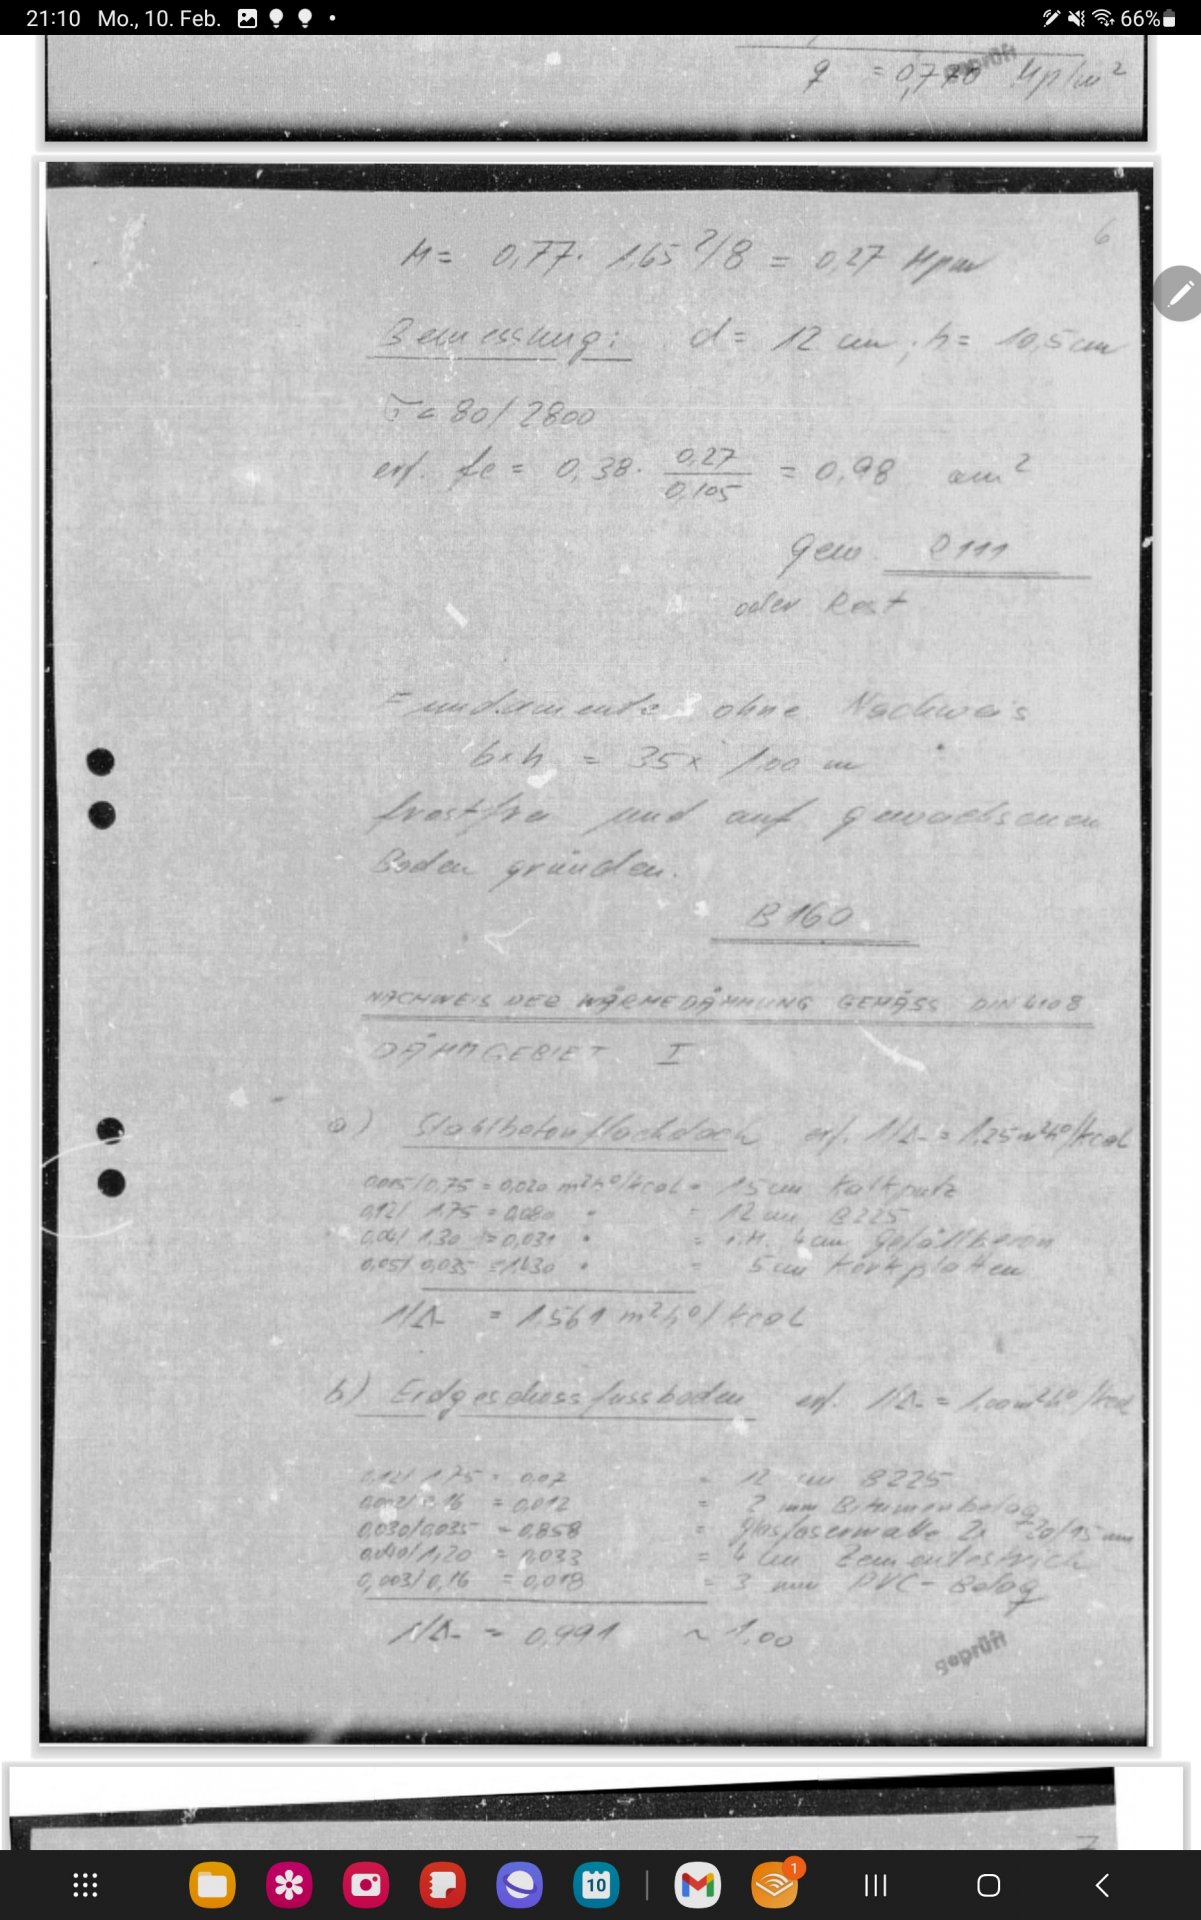 21:10 Mo., 10. Feb.
66%
q = 0,770 Mp/m²
geprüft
6
M = 0,77 · 1,65²/8 = 0,27 Mpm
Bemessung: d = 12 cm ; h = 10,5 cm
80/2800
erf. fe = 0,38 · 0,27/0,105 = 0,98 cm²
gew. Q 111
oder Rest
Fundamente ohne Nachweis
b×h = 35 × 1,00 m
frostfrei und auf gewachsenen
Boden gründen.
B 160
NACHWEIS DER WÄRMEDÄMMUNG GEMÄSS DIN 4108
DÄMMGEBIET I
a) Stahlbetonflachdach erf. 1/Λ = 1,25 m²h°/kcal
0,015/0,75 = 0,020 m²h°/kcal = 1,5 cm Kalkputz
0,12/1,75 = 0,080 " = 12 cm B225
0,04/1,30 = 0,031 " = i.M. 4 cm Gefällbeton
0,05/0,035 = 1,430 " = 5 cm Korkplatten
1/Λ = 1,561 m²h°/kcal
b) Erdgeschossfussboden erf. 1/Λ = 1,00 m²h°/kcal
0,12/1,75 = 0,07 = 12 cm B225
0,002/0,16 = 0,012 = 2 mm Bitumenbelag
0,030/0,035 = 0,858 = Glasfasermatte 2x 20/15 mm
0,040/1,20 = 0,033 = 4 cm Zementestrich
0,003/0,16 = 0,018 = 3 mm PVC-Belag
1/Λ = 0,991 ~ 1,00
geprüft
7
10
1